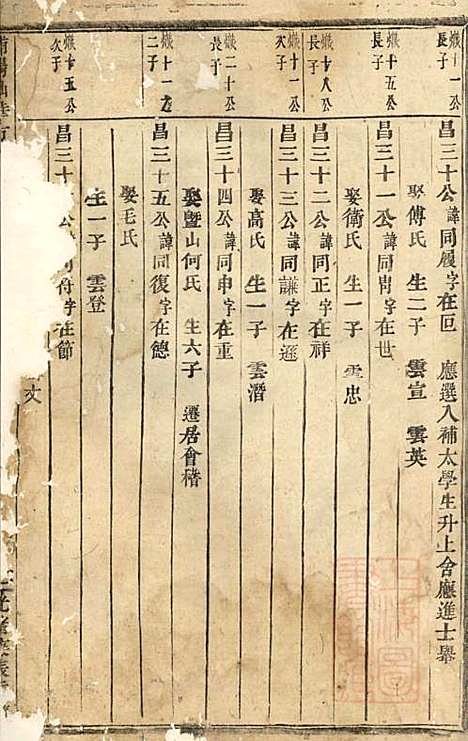 熾十一公長子
昌三十公諱同履字在叵 應選入補太學生升上舍應進士舉
娶傅氏 生二子 雲宣 雲英
熾十五公長子
昌三十一公諱同胄字在世
娶衛氏 生一子 雲忠
熾十八公長子
昌三十二公諱同正字在祥
熾二十公長子
昌三十三公諱同謙字在遜
娶高氏 生一子 雲潛
昌三十四公諱同申字在重
娶暨山何氏 生六子 遷居會稽
熾十一公二子
昌三十五公諱同復字在德
娶毛氏
生一子 雲登
熾十五公次子
昌三十 公 同符字在節